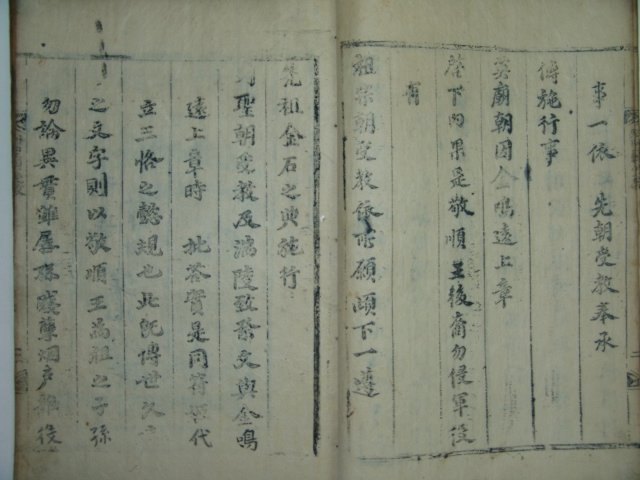 事一依 先朝受敎奉承
傳施行事
英廟朝因金鳴遠上章
啓下內果是敬順王後裔勿侵軍役
有
祖宗朝受敎依所願頉下一遵
先祖金石之典施行
列聖朝受敎及鴻陵致祭文與金鳴
遠上章時 批答實是同符 代
立三恪之懿規也此旣傳世久
之文字則以敬順王爲祖之子孫
勿論異貫雖孱殘賤孽烟戶雜役